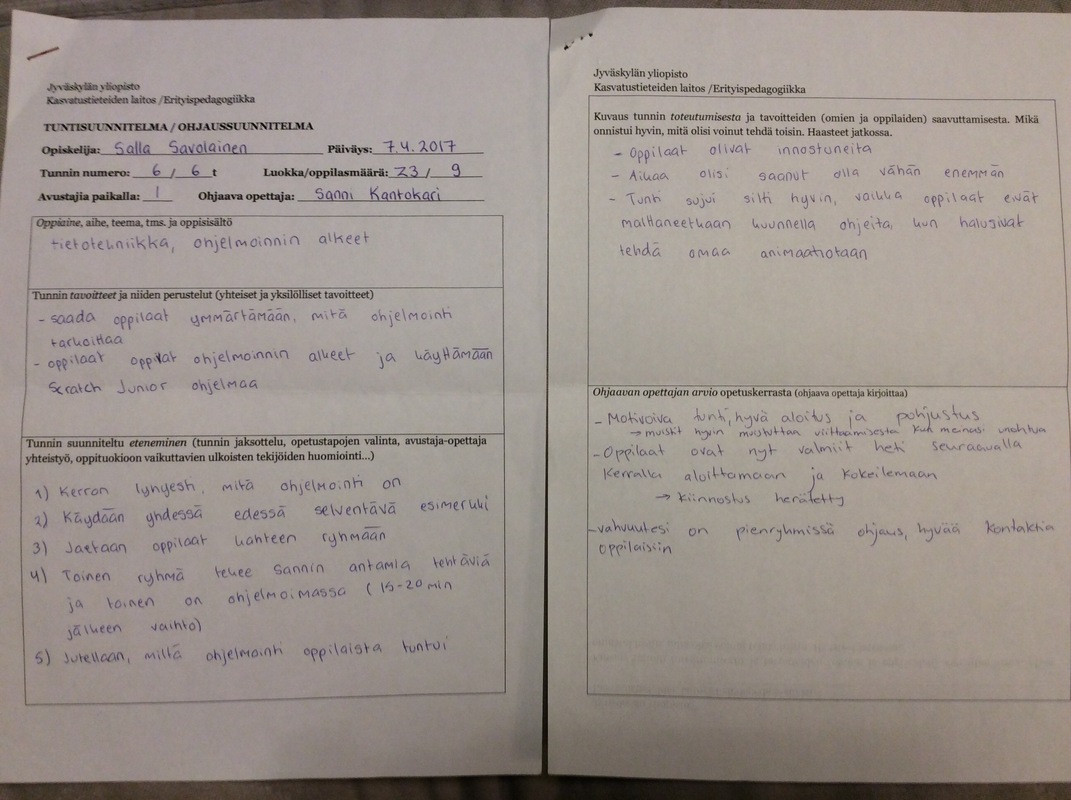 Jyväskylän yliopisto
Kasvatustieteiden laitos /Erityispedagogiikka
TUNTISUUNNITELMA / OHJAUSSUUNNITELMA
Opiskelija: Salla Savolainen Päiväys: 7.4.2017
Tunnin numero: 6 / 6 t Luokka/oppilasmäärä: Z3 / 9
Avustajia paikalla: 1 Ohjaava opettaja: Sanni Kantokari
Oppiaine, aihe, teema, tms. ja oppisisältö
tietotekniikka, ohjelmoinnin alkeet
Tunnin tavoitteet ja niiden perustelut (yhteiset ja yksilölliset tavoitteet)
- saada oppilaat ymmärtämään, mitä ohjelmointi
tarkoittaa
- oppilaat oppivat ohjelmoinnin alkeet ja käyttämään
Scratch Junior ohjelmaa
Tunnin suunniteltu eteneminen (tunnin jaksottelu, opetustapojen valinta, avustaja-opettaja
yhteistyö, oppituokioon vaikuttavien ulkoisten tekijöiden huomiointi...)
1) Kerron lyhyesti, mitä ohjelmointi on
2) Käydään yhdessä edessä selventävä esimerkki
3) Jaetaan oppilaat kahteen ryhmään
4) Toinen ryhmä tekee Sannin antamia tehtäviä
ja toinen on ohjelmoimassa (15-20 min
jälkeen vaihto)
5) Jutellaan, miltä ohjelmointi oppilaista tuntui
Jyväskylän yliopisto
Kasvatustieteiden laitos /Erityispedagogiikka
Kuvaus tunnin toteutumisesta ja tavoitteiden (omien ja oppilaiden) saavuttamisesta. Mikä
onnistui hyvin, mitä olisi voinut tehdä toisin. Haasteet jatkossa.
- Oppilaat olivat innostuneita
- Aikaa olisi saanut olla vähän enemmän
- Tunti sujui silti hyvin, vaikka oppilaat eivät
malttaneetkaan kuunnella ohjeita, kun halusivat
tehdä omaa animaatiotaan
Ohjaavan opettajan arvio opetuskerrasta (ohjaava opettaja kirjoittaa)
- Motivoiva tunti, hyvä aloitus ja pohjustus
→ muistit hyvin muistuttaa viittaamisesta kun meinasi unohtua
- Oppilaat ovat nyt valmiit heti seuraavalla
Kerralla aloittamaan ja kokeilemaan
→ kiinnostus herätetty
- vahvuutesi on pienryhmissä ohjaus, hyvää kontaktia
oppilaisiin